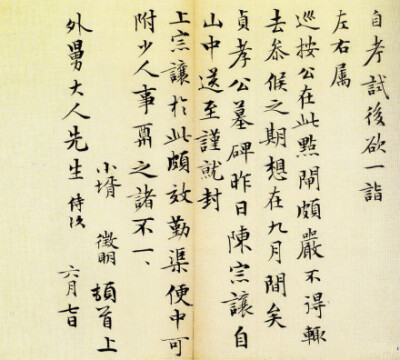 自考試後欲一詣
左右属
巡按公在此點閘頗嚴不得輒
去參候之期想在九月間矣
貞孝公墓碑昨日陳宗讓自
山中送至謹就封
上宗讓於此頗效勤渠便中可
附少人事齎之諸不一、
小壻徵明頓首上
外舅大人先生侍次
六月七日